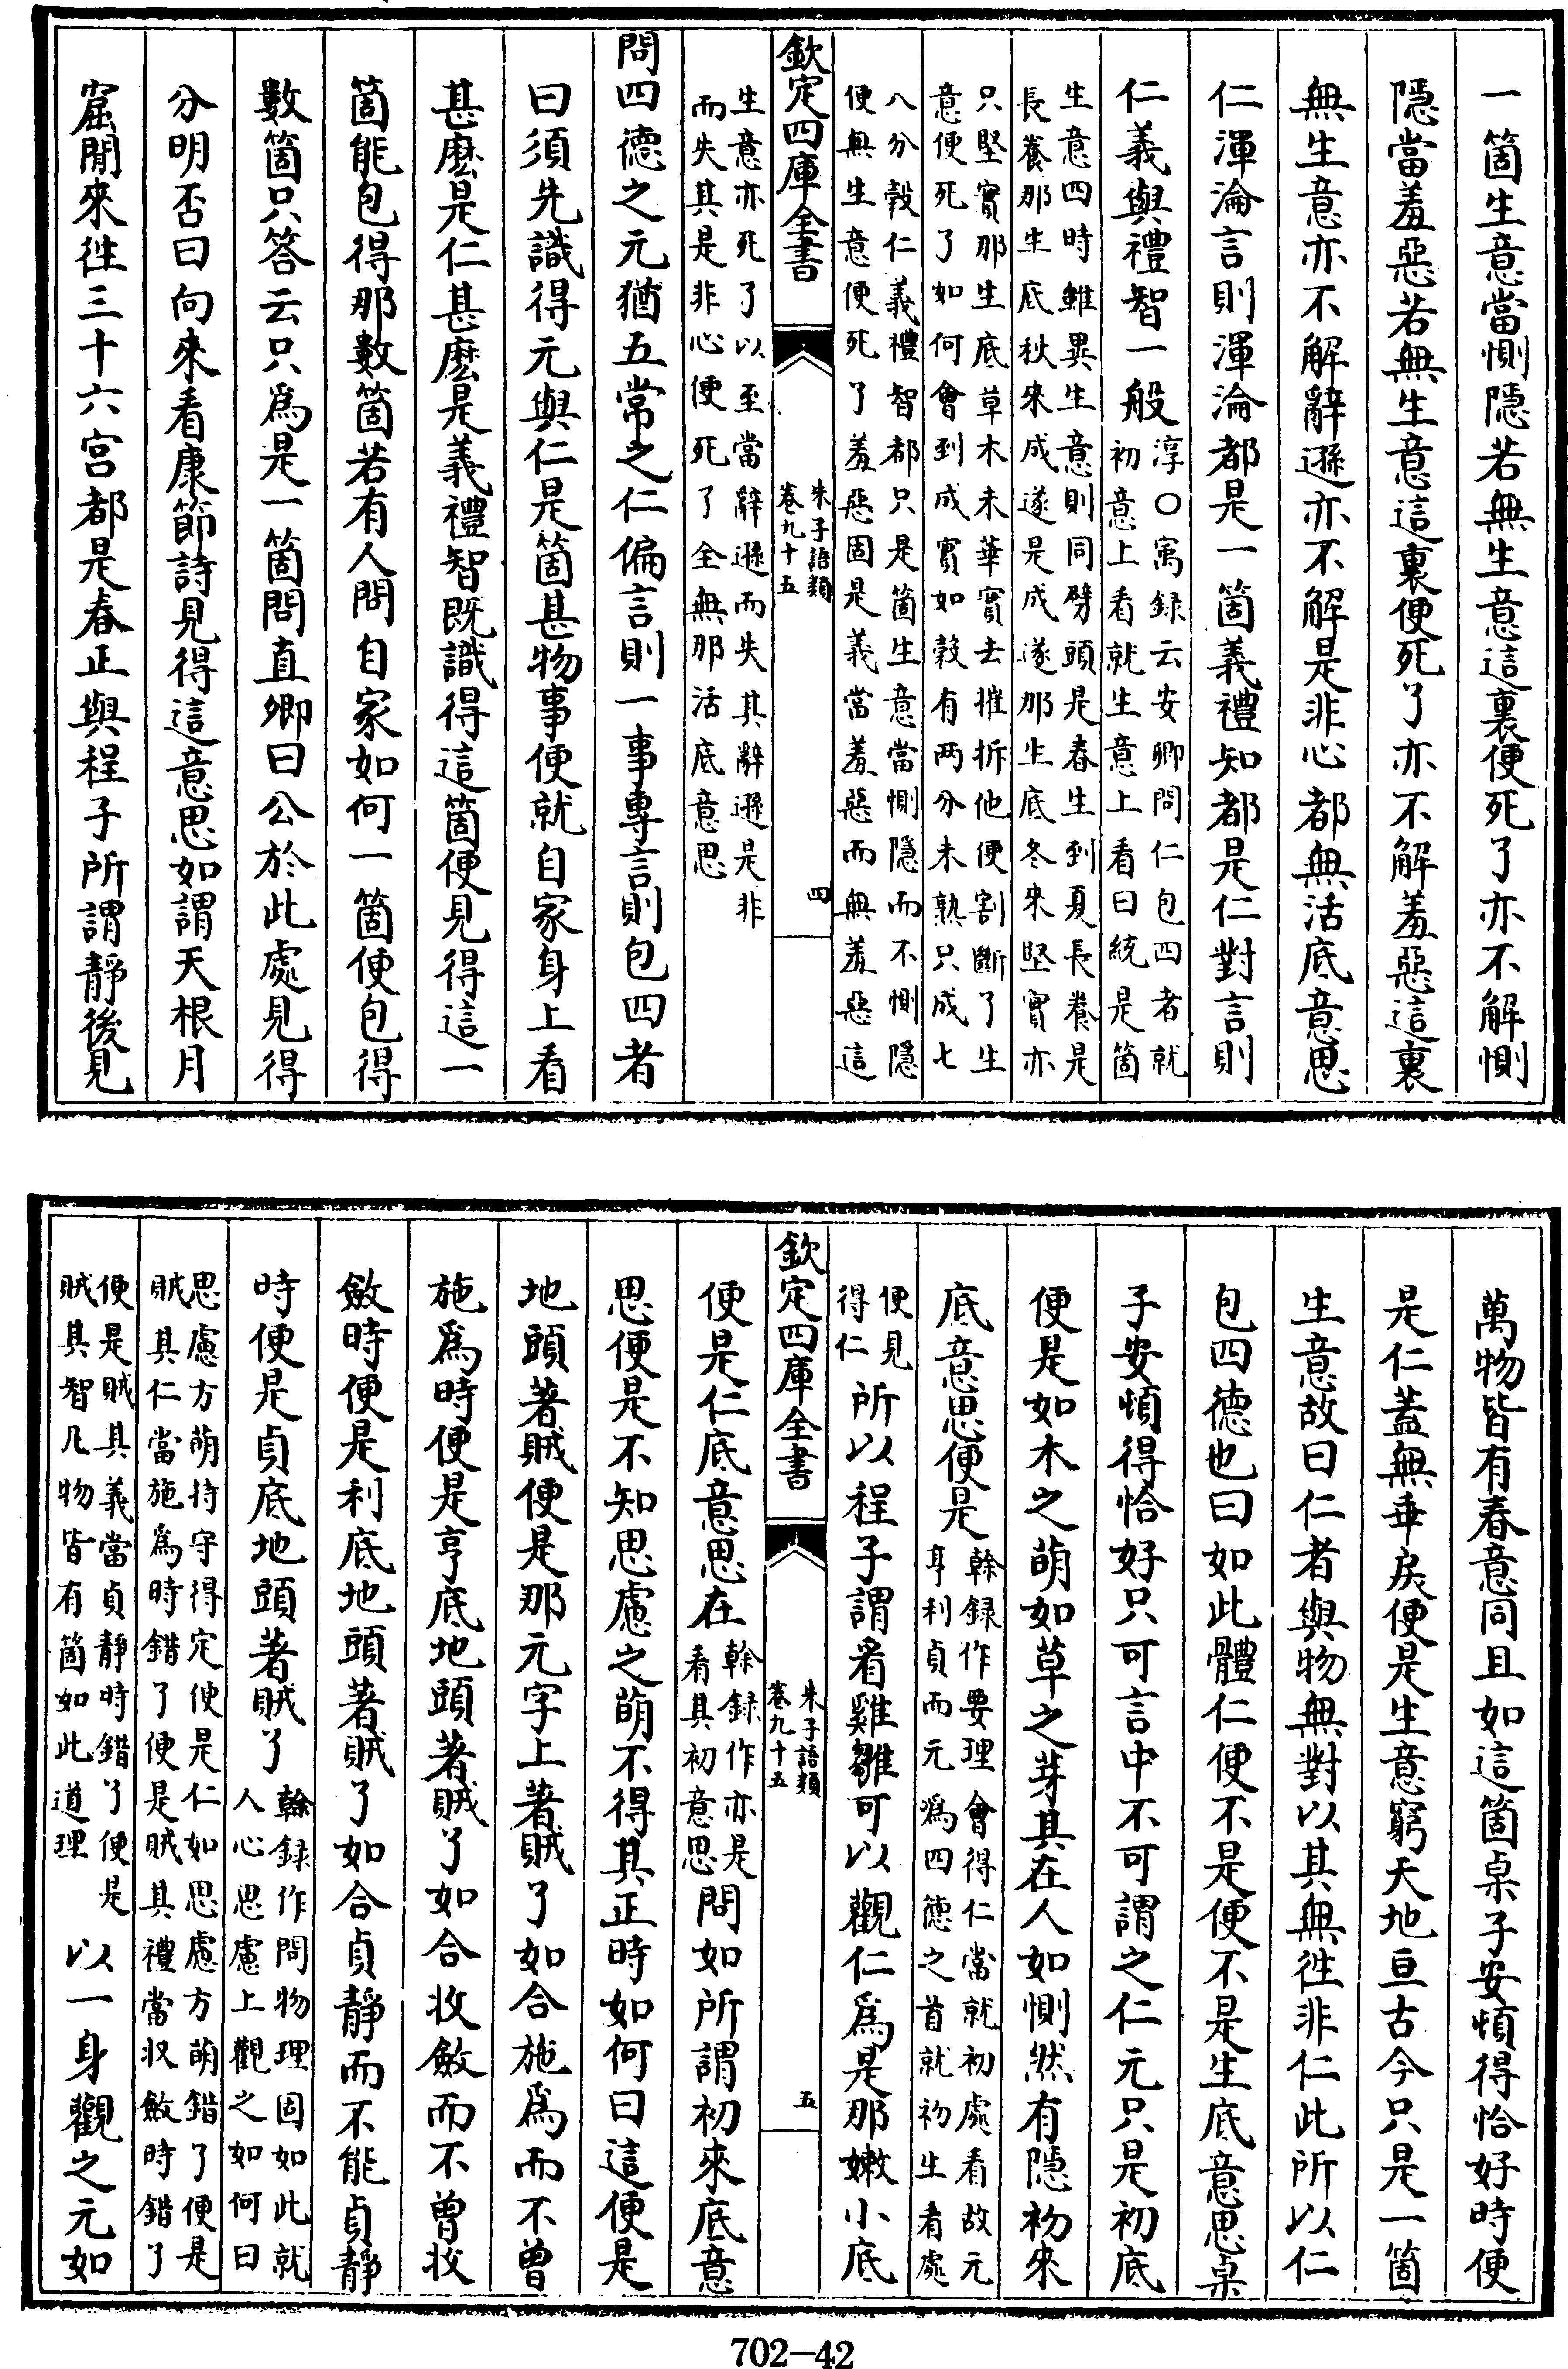 一箇生意當惻隱若無生意這裏便死了亦不解惻
隱當羞惡若無生意這裏便死了亦不解羞惡這裏
無生意亦不解辭遜亦不解是非心都無活底意思
仁渾淪言則渾淪都是一箇義禮知都是仁對言則
仁義與禮智一般淳〇㝢録云安卿問仁包四者就
初意上看就生意上看曰統是箇
生意四時雖異生意則同劈頭是春生到夏長養是
長養那生底秋來成遂是成遂那生底冬來堅實亦
只堅實那生底草木未華實去摧折他便割斷了生
意便死了如何會到成實如榖有兩分未熟只成七
八分榖仁義禮智都只是箇生意當惻隱而不惻隱
便無生意便死了羞惡固是義當羞惡而無羞惡這
欽定四庫全書
朱子語類
卷九十五
四
生意亦死了以至當辭遜而失其辭遜是非
而失其是非心便死了全無那活底意思
問四德之元猶五常之仁偏言則一事專言則包四者
曰須先識得元與仁是箇甚物事便就自家身上看
甚麽是仁甚麽是義禮智既識得這箇便見得這一
箇能包得那數箇若有人問自家如何一箇便包得
數箇只答云只為是一箇問直卿曰公於此處見得
分明否曰向來看康節詩見得這意思如謂天根月
窟閒來徃三十六宮都是春正與程子所謂靜後見
萬物皆有春意同且如這箇桌子安頓得恰好時便
是仁蓋無乖戾便是生意窮天地亘古今只是一箇
生意故曰仁者與物無對以其無徃非仁此所以仁
包四德也曰如此體仁便不是便不是生底意思桌
子安頓得恰好只可言中不可謂之仁元只是初底
便是如木之萌如草之芽其在人如惻然有隱初來
底意思便是榦録作要理會得仁當就初處看故元
亨利貞而元為四德之首就初生者處
便見
得仁所以程子謂看雞雛可以觀仁為是那嫩小底
欽定四庫全書
朱子語類
卷九十五
五
便是仁底意思在榦録作亦是
看其初意思問如所謂初來底意
思便是不知思慮之萌不得其正時如何曰這便是
地頭著賊便是那元字上著賊了如合施為而不曾
施為時便是亨底地頭著賊了如合收斂而不曾收
斂時便是利底地頭著賊了如合貞靜而不能貞靜
時便是貞底地頭著賊了榦録作問物理固如此就
人心思慮上觀之如何曰
思慮方萌持守得定便是仁如思慮方萌錯了便是
賊其仁當施為時錯了便是賊其禮當收斂時錯了
便是賊其義當貞靜時錯了便是
賊其智凡物皆有箇如此道理以一身觀之元如
702-42